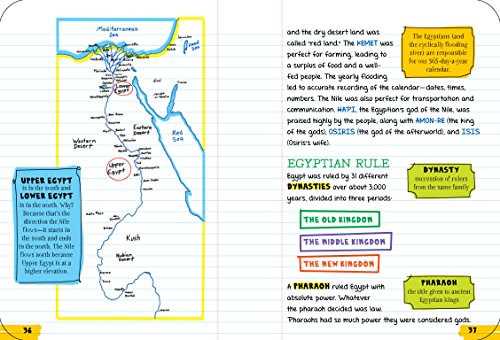 Mediterranean
Sea
Dead
Sea
Lower
Egypt
Western
Desert
Eastern
Desert
Red
Sea
Upper
Egypt
Kush
Nubian
Desert
UPPER EGYPT
is in the south and
LOWER EGYPT
is in the north. Why?
Because that's the
direction the Nile
flows—it starts
in the south and ends
in the north. The Nile
flows north because
Upper Egypt is at a
higher elevation.
36
and the dry desert land was
called "red land." The KEMET was
perfect for farming, leading to
a surplus of food and a well-
fed people. The yearly flooding
led to accurate recording of the calendar—dates, times,
numbers. The Nile was also perfect for transportation and
communication. HAPI, the Egyptian's god of the Nile, was
praised highly by the people, along with AMON-RE (the king
of the gods), OSIRIS (the god of the afterworld), and ISIS
(Osiris's wife).
The Egyptians (and
the cyclically flooding
river) are responsible
for our 365-day-a-year
calendar.
EGYPTIAN RULE
Egypt was ruled by 31 different
DYNASTIES over about 3,000
years, divided into three periods:
DYNASTY
succession of rulers
from the same family
THE OLD KINGDOM
THE MIDDLE KINGDOM
THE NEW KINGDOM
A PHARAOH ruled Egypt with
absolute power. Whatever
the pharaoh decided was law.
Pharaohs had so much power they were considered gods.
PHARAOH
the title given to ancient
Egyptian kings
37